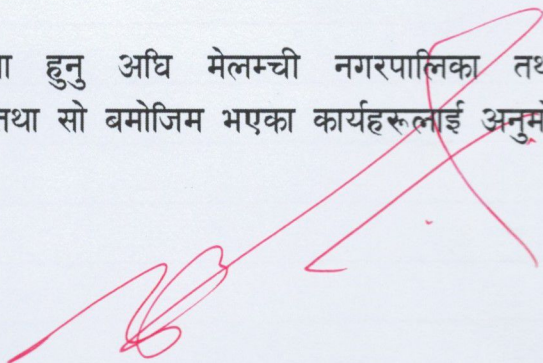 ा हुनु अघि मेलम्ची नगरपालिका तथ
तथा सो बमोजिम भएका कार्यहरूलाई अनुमो